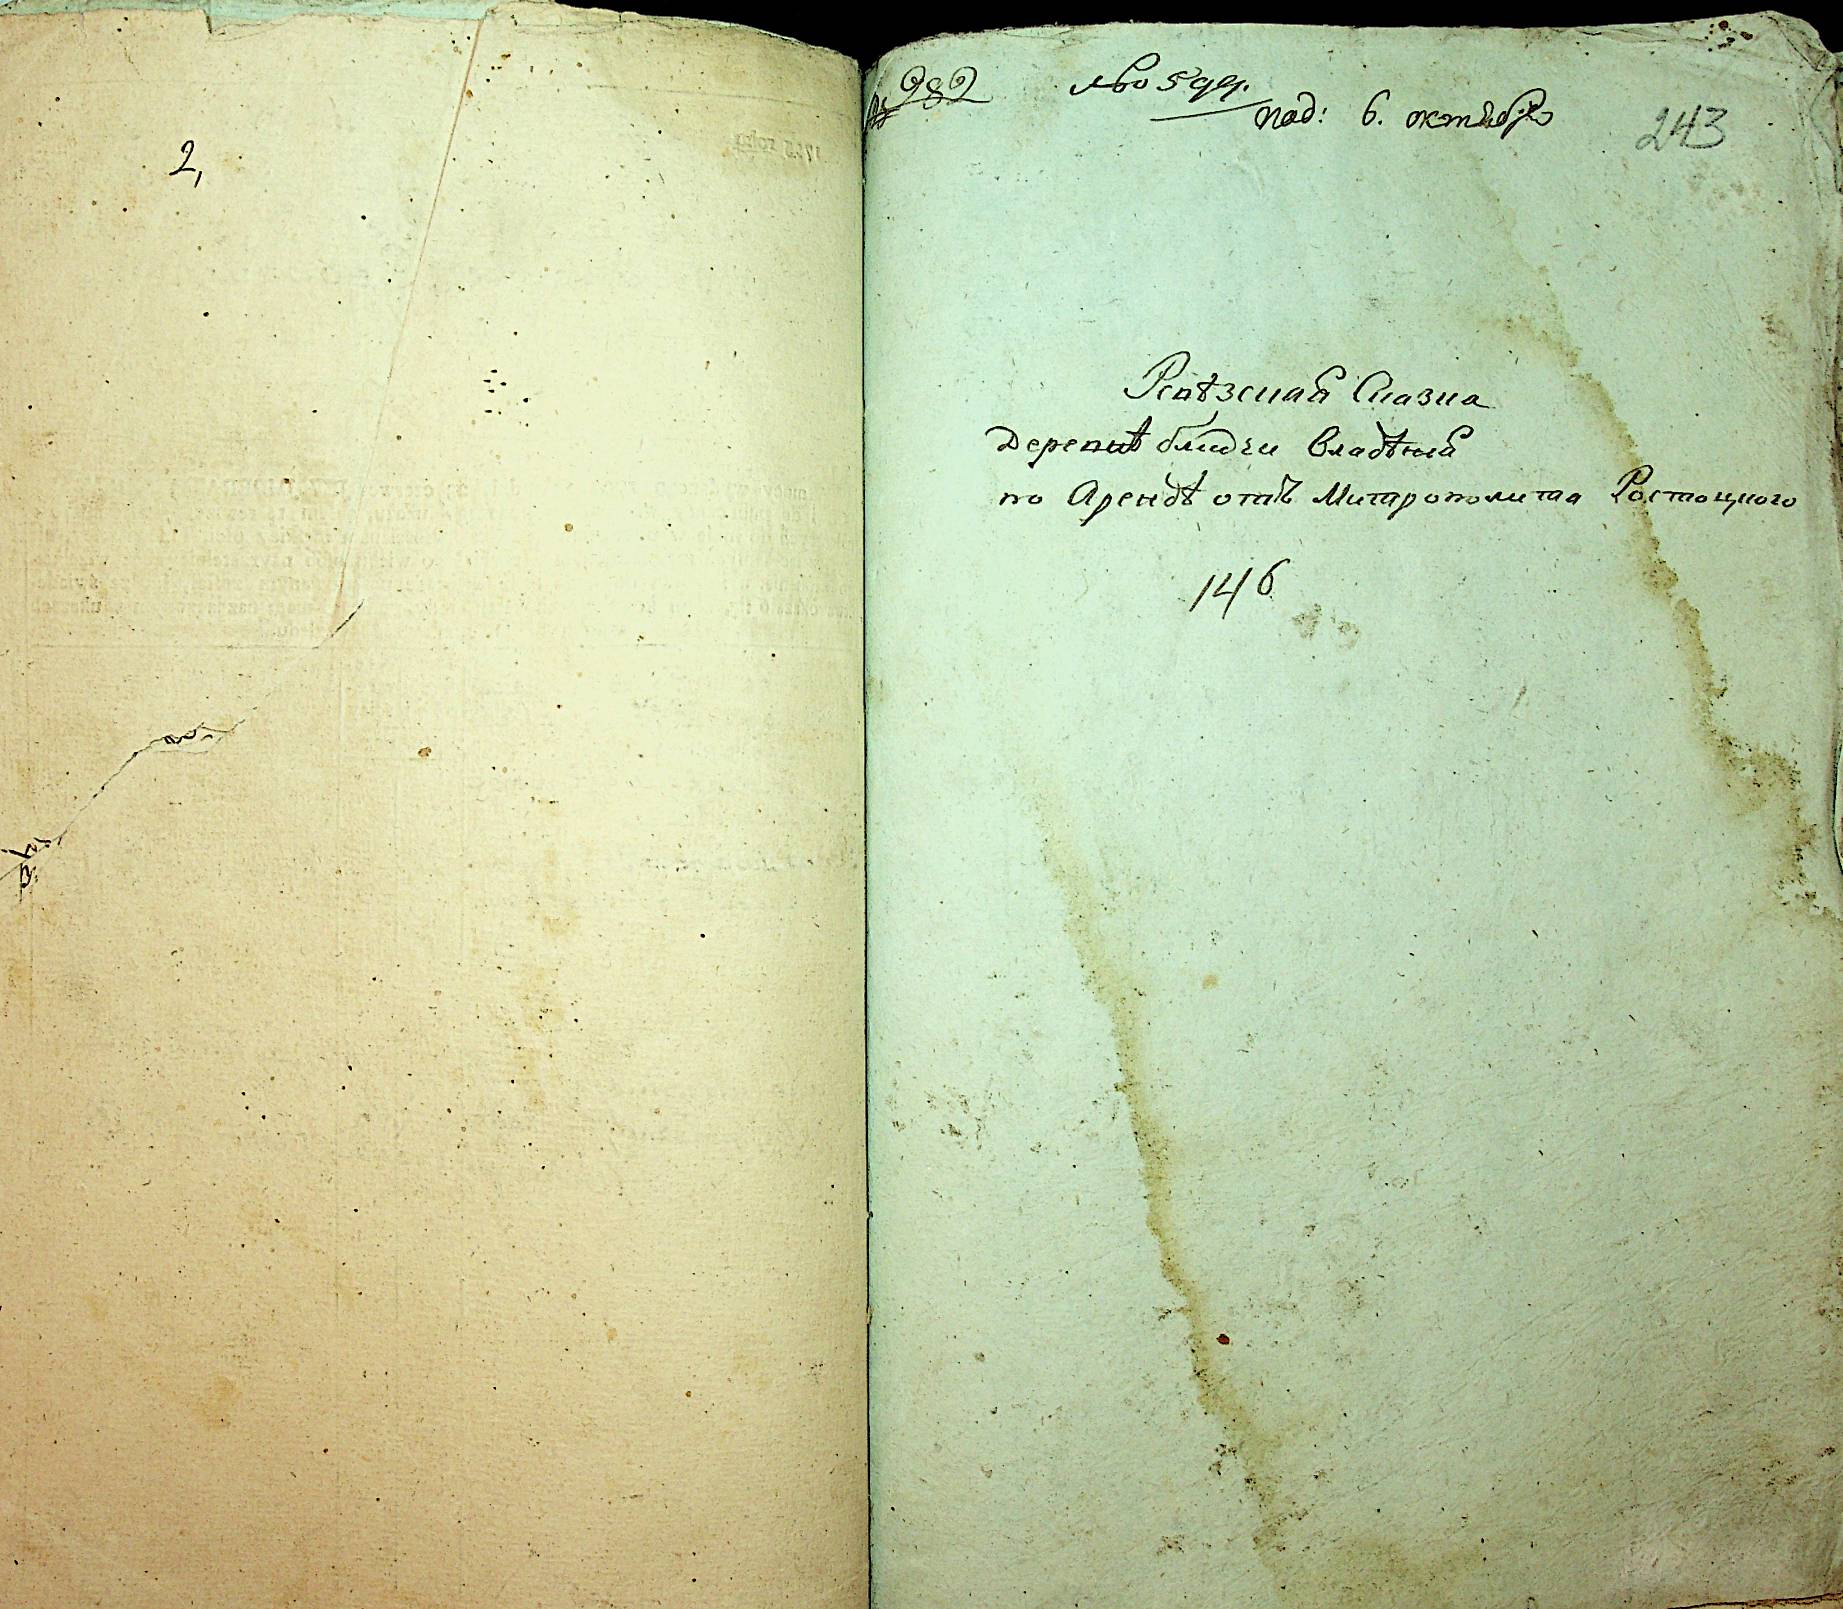 2,
№ 282
№ 599.
под: 6. октября
243
Ревѣзская Сказка
деревнѣ блидчи владѣния
по Арендѣ отъ Митрополита Ростоцкого
146